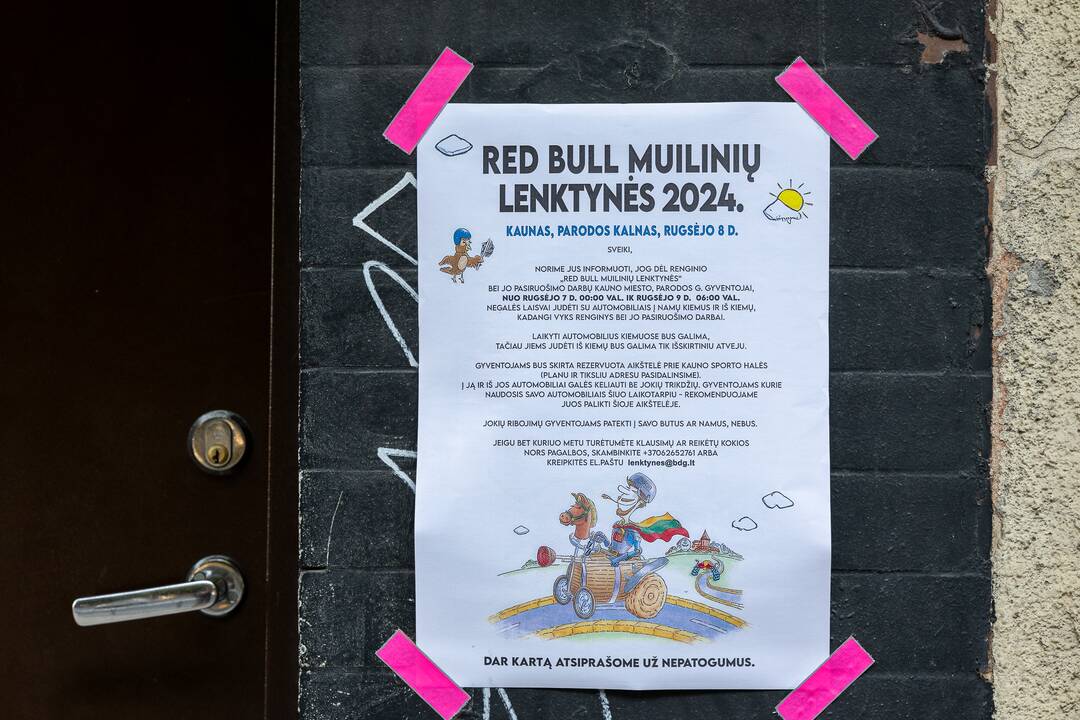 RED BULL MUILINIŲ
LENKTYNĖS 2024.
KAUNAS, PARODOS KALNAS, RUGSĖJO 8 D.
SVEIKI,
NORIME JUS INFORMUOTI, JOG DĖL RENGINIO
„RED BULL MUILINIŲ LENKTYNĖS"
BEI JO PASIRUOŠIMO DARBŲ KAUNO MIESTO, PARODOS G. GYVENTOJAI,
NUO RUGSĖJO 7 D. 00:00 VAL. IK RUGSĖJO 9 D. 06:00 VAL.
NEGALĖS LAISVAI JUDĖTI SU AUTOMOBILIAIS Į NAMŲ KIEMUS IR IŠ KIEMŲ,
KADANGI VYKS RENGINYS BEI JO PASIRUOŠIMO DARBAI.
LAIKYTI AUTOMOBILIUS KIEMUOSE BUS GALIMA,
TAČIAU JIEMS JUDĖTI IŠ KIEMŲ BUS GALIMA TIK IŠSKIRTINIU ATVEJU.
GYVENTOJAMS BUS SKIRTA REZERVUOTA AIKŠTELĖ PRIE KAUNO SPORTO HALĖS
(PLANU IR TIKSLIU ADRESU PASIDALINSIME).
Į JĄ IR IŠ JOS AUTOMOBILIAI GALĖS KELIAUTI BE JOKIŲ TRIKDŽIŲ. GYVENTOJAMS KURIE
NAUDOSIS SAVO AUTOMOBILIAIS ŠIUO LAIKOTARPIU - REKOMENDUOJAME
JUOS PALIKTI ŠIOJE AIKŠTELĖJE.
JOKIŲ RIBOJIMŲ GYVENTOJAMS PATEKTI Į SAVO BUTUS AR NAMUS, NEBUS.
JEIGU BET KURIUO METU TURĖTUMĖTE KLAUSIMŲ AR REIKĖTŲ KOKIOS
NORS PAGALBOS, SKAMBINKITE +37062652761 ARBA
KREIPKITĖS EL.PAŠTU lenktynes@bdg.lt
DAR KARTĄ ATSIPRAŠOME UŽ NEPATOGUMUS.